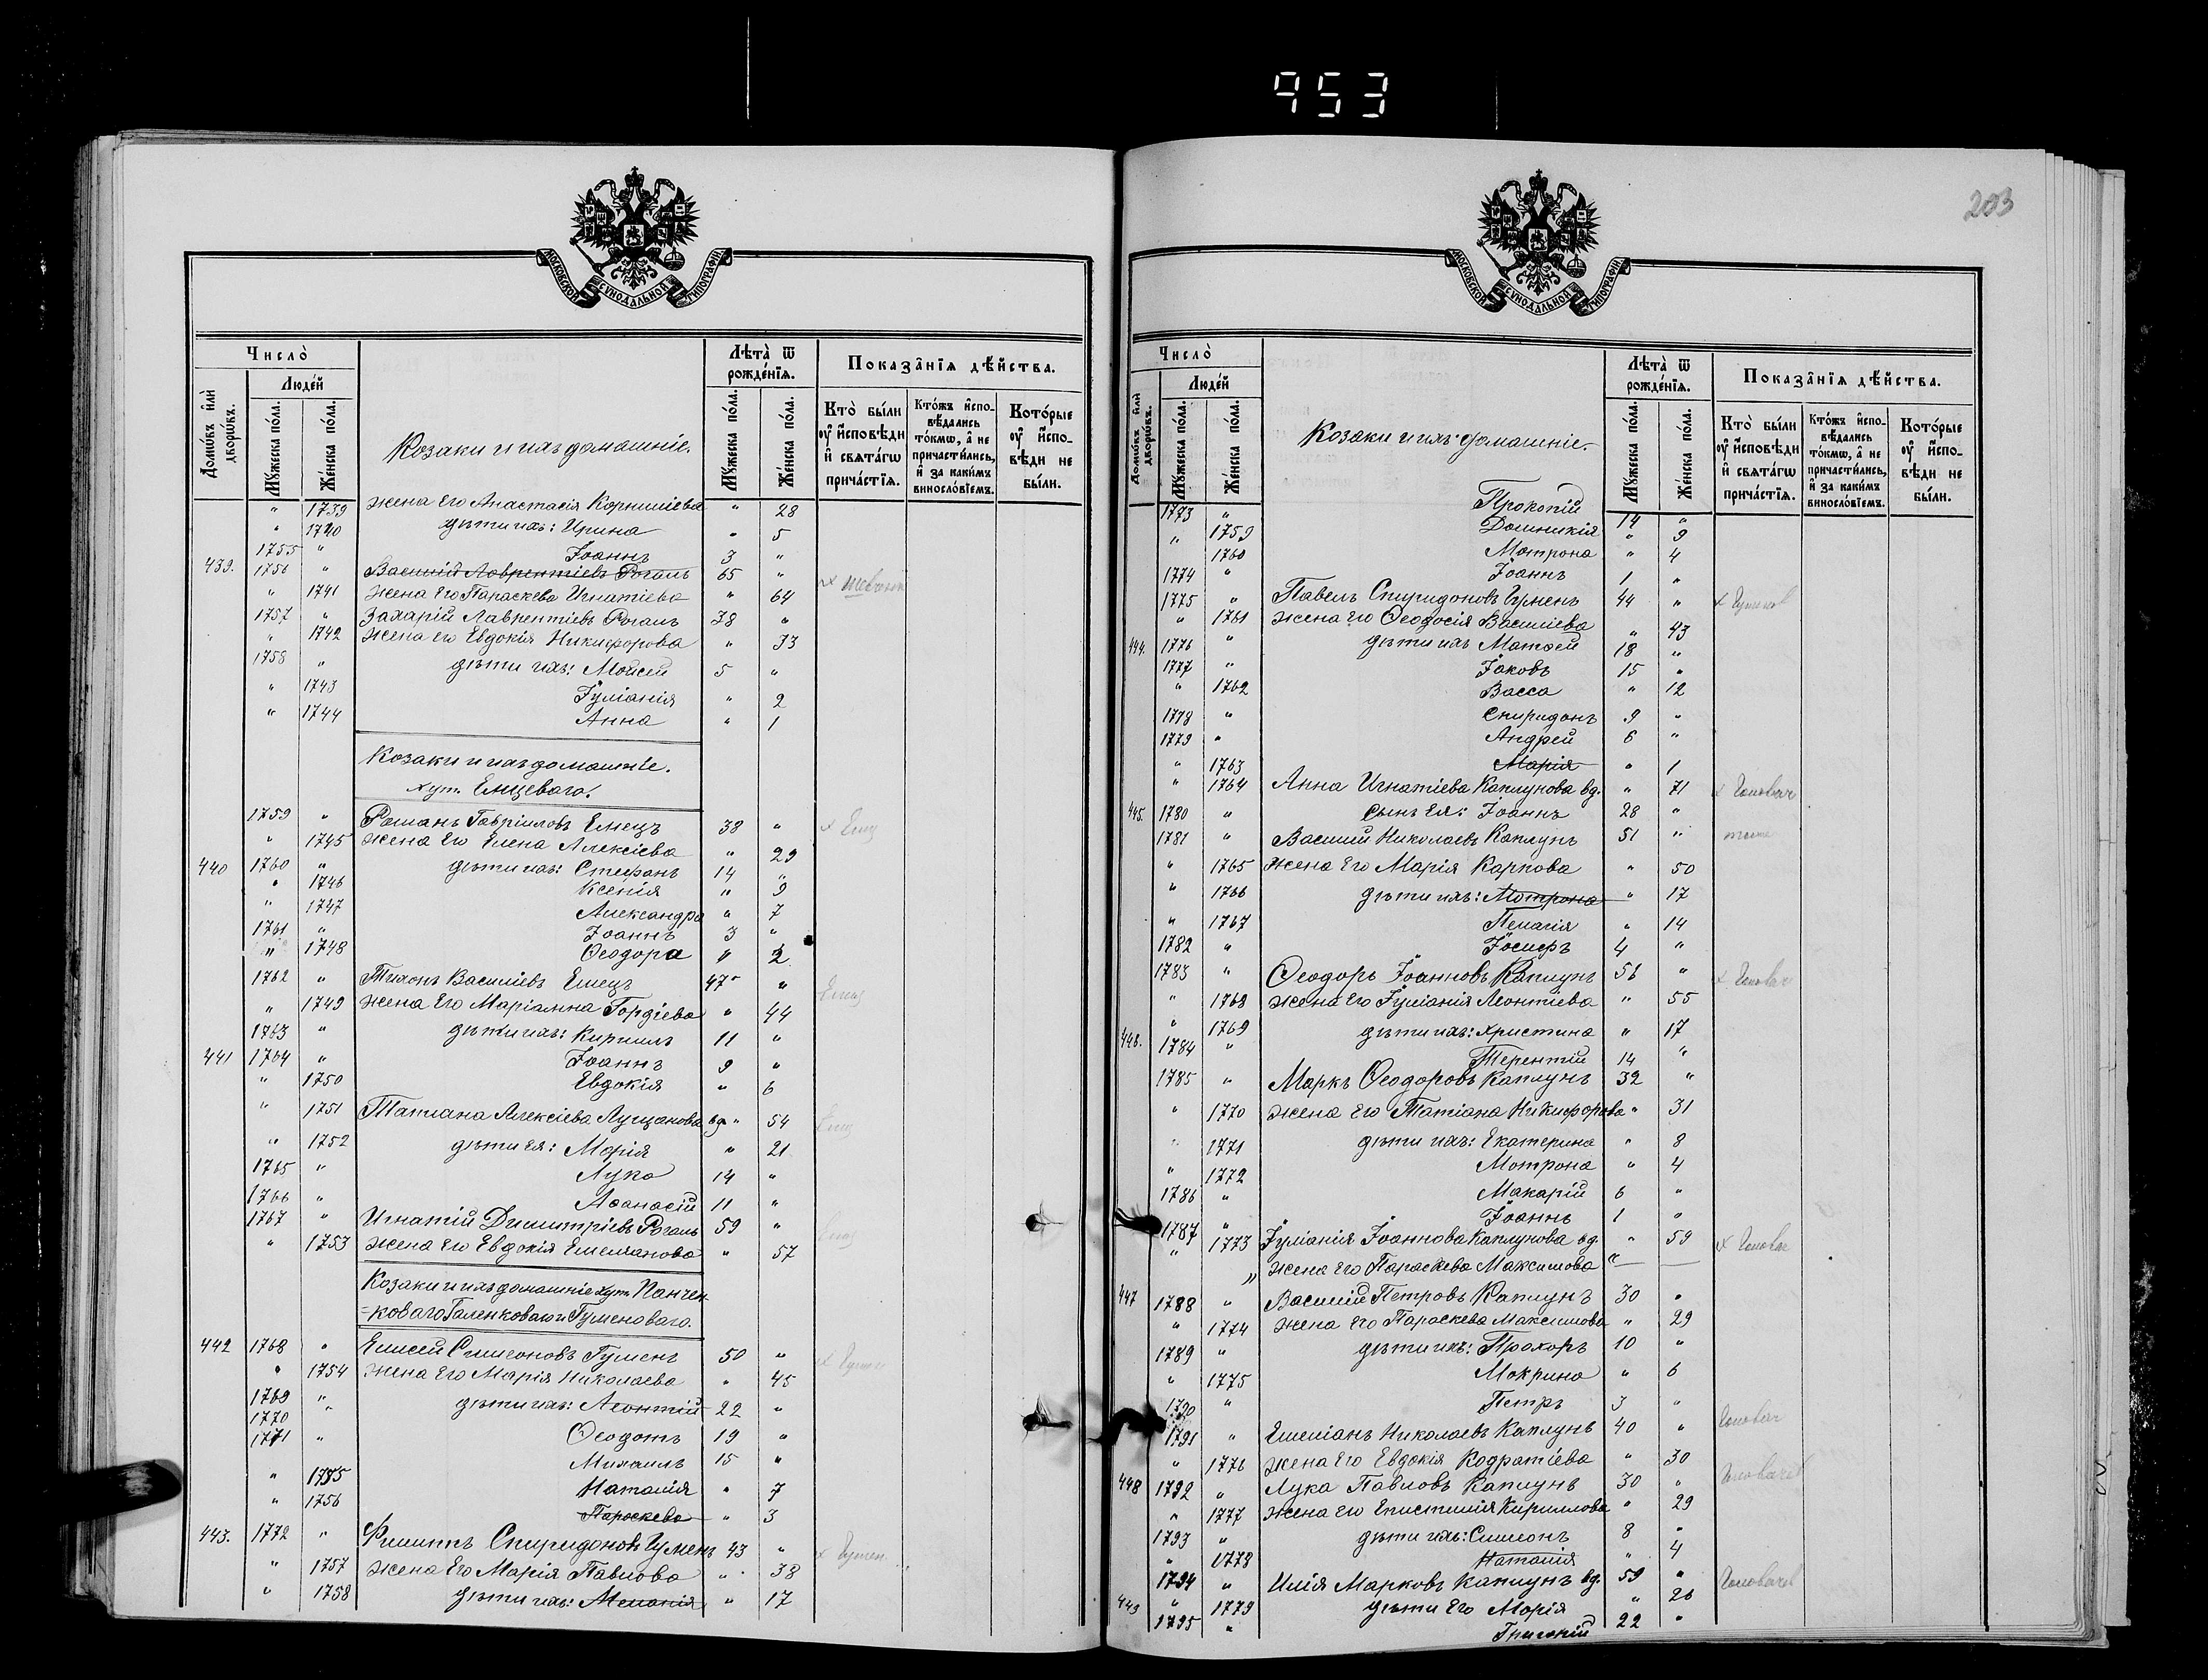 953
203
МОСКОВСКОЙ СѴНОДАЛЬНОЙ ТИПОГРАФІИ
Число̀
Люде́й
Домѡ́въ и҆лѝ дворѡ́въ.
Мꙋ́жеска по́ла.
Же́нска по́ла.
Козаки и ихъ домашніе.
Лѣта̀ ѿ рожде́нїѧ.
Мꙋ́жеска по́ла.
Же́нска по́ла.
Показа̑нїѧ дѣ́йства.
Кто̀ бы́ли оу҆ и҆сповѣди и҆ свѧта́гѡ прича́стїѧ.
Кто́жъ и҆спо-вѣ́дались то́кмѡ, а҆ не причасти́лись, и҆ за каки́мъ винослові́емъ.
Кото́рые оу҆ и҆спо-вѣди не бы́ли.
" 1739 жена его Анастасія Корниліева " 28
" 1740 дѣти ихъ: Ирина " 5
1755 " Іоаннъ 3 "
439. 1756 " Василій Лаврентіевъ Рогаль 65 "
" 1741 жена его Параскева Игнатіева " 64
1757 " Захарій Лаврентіевъ Рогаль 38 "
" 1742 жена его Евдокія Никифорова " 33
1758 " дѣти ихъ: Мойсей 5 "
" 1743 Іуліанія " 2
" 1744 Анна " 1
Козаки и ихъ домашніе.
хут. Емцеваго.
1759 " Романъ Гавріиловъ Емецъ 38 " х Емц
" 1745 жена его Елена Алексіева " 29
440 1760 " дѣти ихъ: Стефанъ 14 "
" 1746 Ксенія " 9
" 1747 Александра " 7
1761 " Іоаннъ 3 "
" 1748 Ѳеодора " 2
1762 " Тихонъ Василіевъ Емецъ 47 " Емец
" 1749 жена его Маріамна Гордіева " 44
1763 " дѣти ихъ: Кириллъ 11 "
441 1764 " Іоаннъ 9 "
" 1750 Евдокія " 6
" 1751 Татіана Алексіева Лущанова вд. " 54 Емц
" 1752 дѣти ея: Марія " 21
1765 " Лука 14 "
1766 " Аѳанасій 11 "
1767 " Игнатій Димитріевъ Рогаль 59 "
" 1753 жена его Евдокія Емеліанова " 57
Козаки и ихъ домашніе хут. Панчен-
=коваго Галенковаго и Гуменоваго.
442 1768 " Елисей Симеоновъ Гуменъ 50 "
" 1754 жена его Марія Николаева " 45
1769 " дѣти ихъ: Леонтій 22 "
1770 "
1771 " Ѳеодотъ 19 "
Михаилъ 15 "
" 1755 Наталія " 7
" 1756 Параскева " 3
443. 1772 " Филиппъ Спиридоновъ Гуменъ 43 " х Гумен
" 1757 жена его Марія Павлова " 38
" 1758 дѣти ихъ: Меланія " 17
МОСКОВСКОЙ СѴНОДАЛЬНОЙ ТИПОГРАФІИ
Число̀
Люде́й
Домѡ́въ и҆лѝ дворѡ́въ.
Мꙋ́жеска по́ла.
Же́нска по́ла.
Козаки и ихъ домашніе.
Лѣта̀ ѿ рожде́нїѧ.
Мꙋ́жеска по́ла.
Же́нска по́ла.
Показа̑нїѧ дѣ́йства.
Кто̀ бы́ли оу҆ и҆сповѣди и҆ свѧта́гѡ прича́стїѧ.
Кто́жъ и҆спо-вѣ́дались то́кмѡ, а҆ не причасти́лись, и҆ за каки́мъ винослові́емъ.
Кото́рые оу҆ и҆спо-вѣди не бы́ли.
1773 " Прокопій 14 "
" 1759 Домникія " 9
1760 Мотрона " 4
1774 " Іоаннъ 1 "
1775 " Павелъ Спиридоновъ Гуменъ 44 "
" 1761 жена его Ѳеодосія Василіева " 43
444. 1776 " дѣти ихъ Матѳей 18 "
1777 " Іаковъ 15 "
" 1762 Васса " 12
1778 " Спиридонъ 9 "
1779 " Андрей 6 "
" 1763 Марія " 1
" 1764 Анна Игнатіева Каплунова вд. " 71 х Головач
445. 1780 " сынъ ея: Іоаннъ 28 "
1781 " Василій Николаевъ Каплунъ 51 "
" 1765 жена его Марія Карпова " 50
" 1766 дѣти ихъ: Мотрона " 17
" 1767 Пелагія " 14
1782 " Іосифъ 4 "
1783 " Ѳеодоръ Іоанновъ Каплунъ 56 " х Головач
" 1768 жена его Іуліанія Леонтіева " 55
" 1769 дѣти ихъ: Христина " 17
446. 1784 " Терентій 14 "
1785 " Маркъ Ѳеодоровъ Каплунъ 32 "
" 1770 жена его Татіана Никифорова " 31
" 1771 дѣти ихъ: Екатерина " 8
" 1772 Мотрона " 4
1786 " Макарій 6 "
1787 " Іоаннъ 1 "
" 1773 Іуліанія Іоаннова Каплунова вд. " 59 х Головач
" жена его Параскева Максимова "
447 1788 " Василій Петровъ Каплунъ 30 "
" 1774 жена его Параскева Максимова " 29
1789 " дѣти ихъ: Прохоръ 10 "
" 1775 Мокрина " 6
1790 " Петръ 3 "
1791 " Емеліанъ Николаевъ Каплунъ 40 " Головач
" 1776 жена его Евдокія Кодратіева " 30
448 1792 " Лука Павловъ Каплунъ 30 "
" 1777 жена его Епистимія Кириллова " 29
1793 " дѣти ихъ: Симеонъ 8 "
" 1778 Наталія " 4
1794 " Илія Марковъ Каплунъ вд. 59 "
449 " 1779 дѣти его Марія " 26
1795 " Григорій 22 "